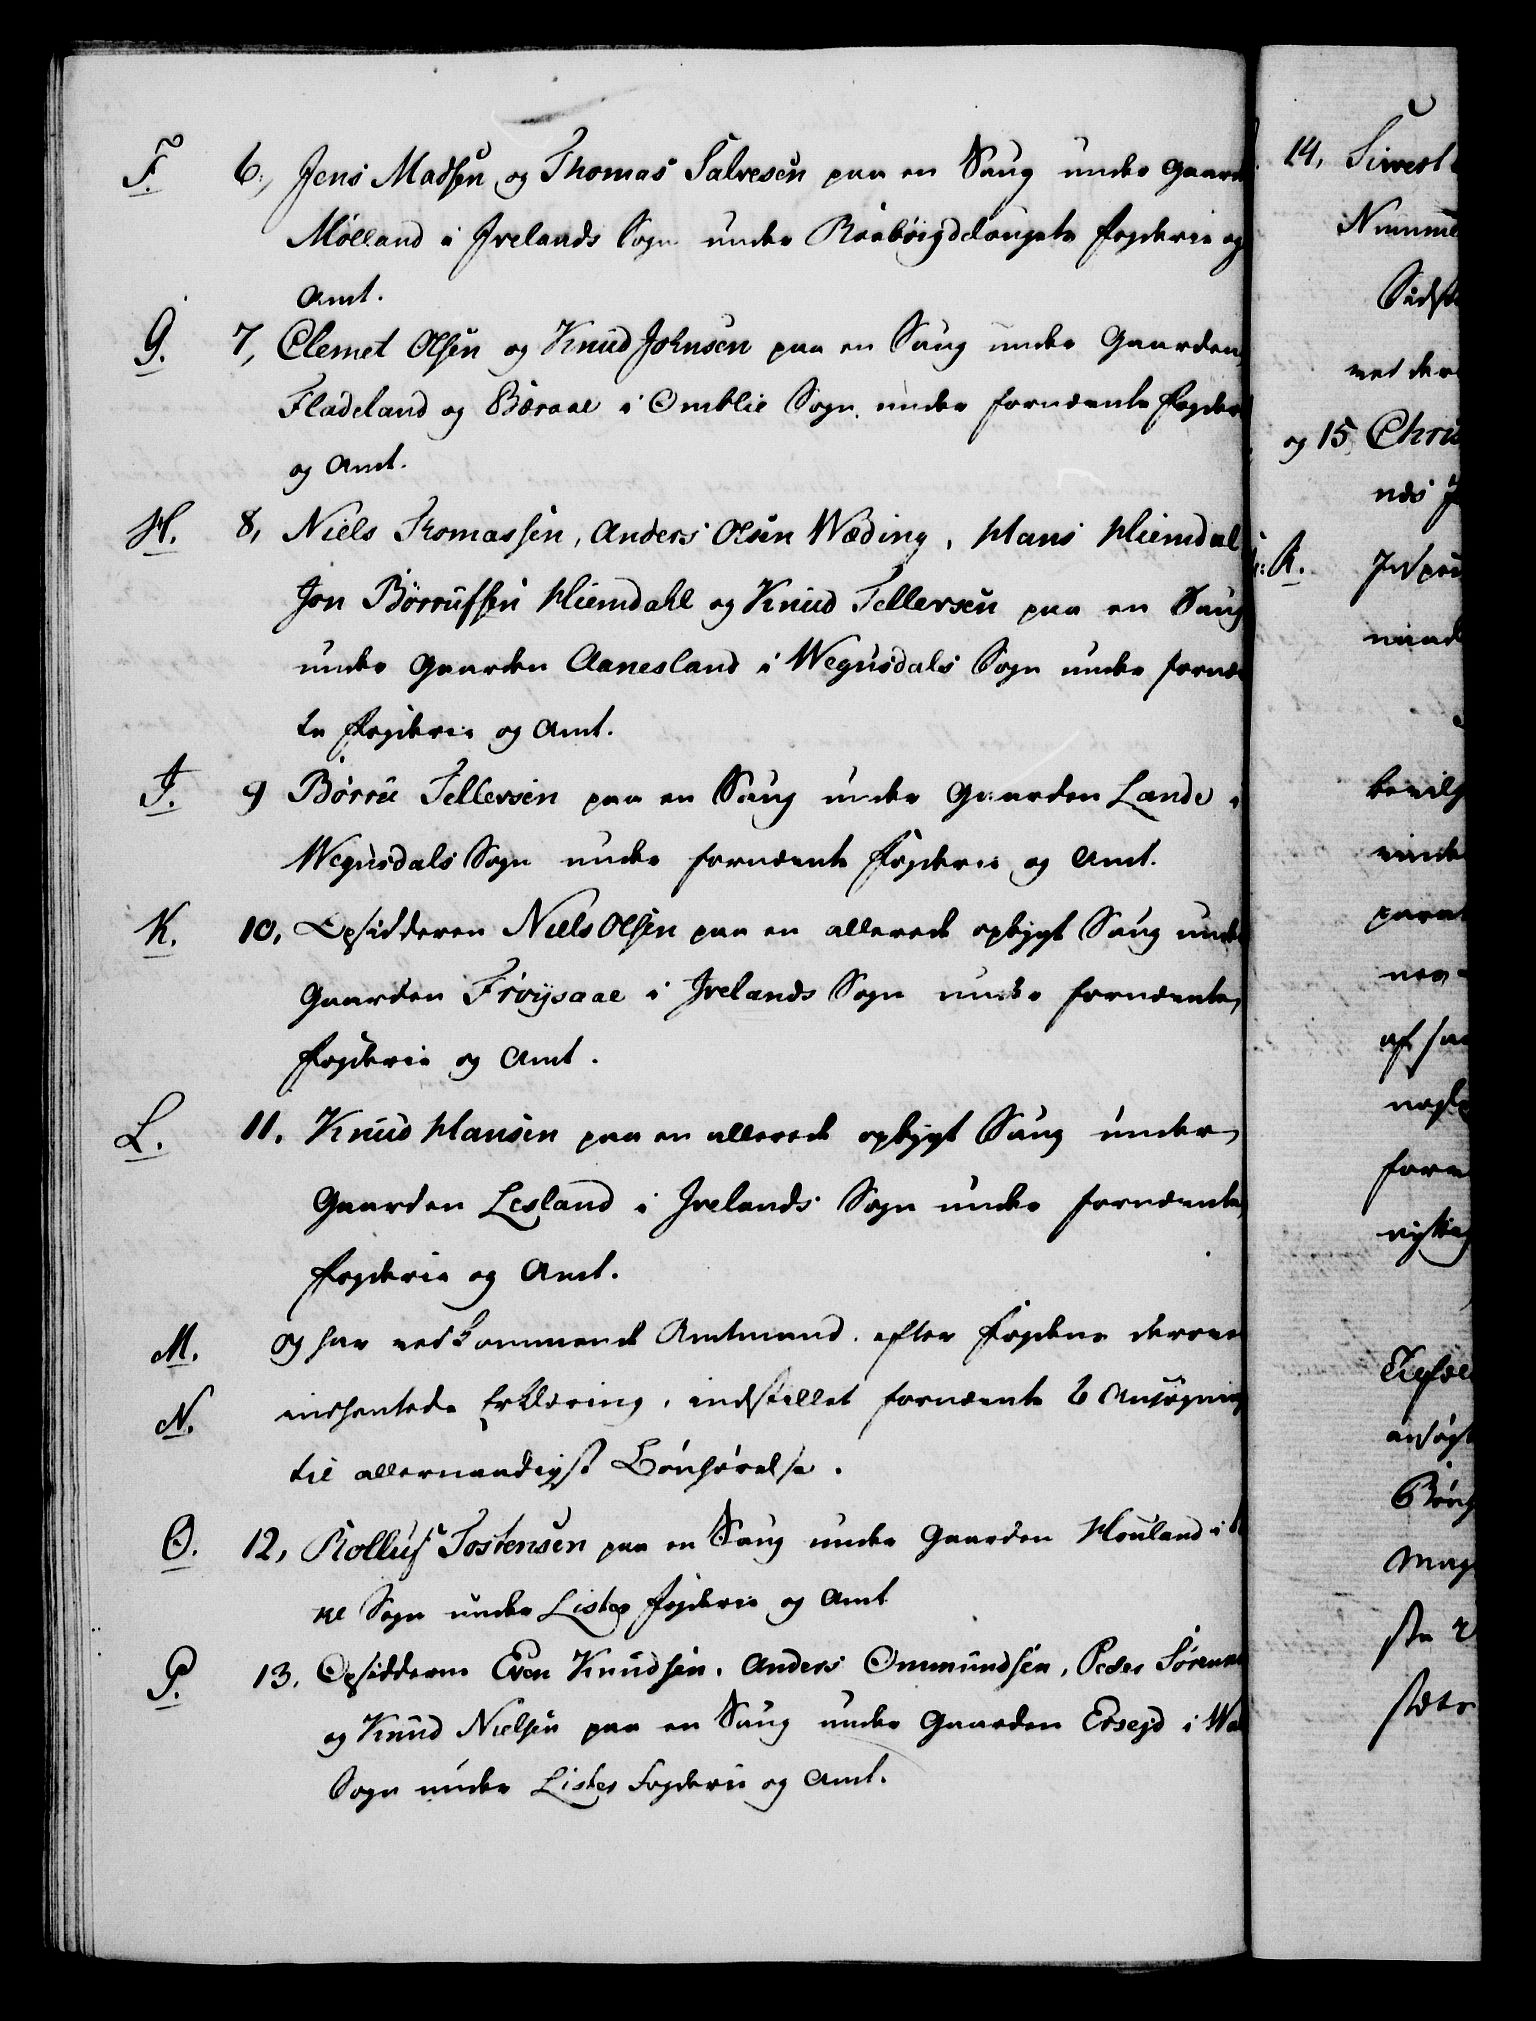 F. 6, Jens Madsen og Thomas Salvesen paa en Saug under Gaard
Mølland i Ivelands Sogn under Raabøigdelaugets Fogderie og
Amt.
G. 7, Clemet Olsen og Knud Johnsen paa en Saug under Gaarden
Fladeland og Børaae i Omblie Sogn under fornævnte Fogderi
og Amt.
H. 8, Niels Thomassen, Anders Olsen Wæding, Hans Hiemdal
Jon Børrufsen Hiemdahl og Knud Tellevsen paa en Saug
under Gaarden Aanesland i Wegusdals Sogn under fornæv
te Fogderie og Amt.
I. 9 Børru Tellevsen paa en Saug under Gaarden Lande i
Wegusdals Sogn under fornævnte Fogderie og Amt.
K. 10, Opsidderen Niels Olsen paa en allerede opbygt Saug under
Gaarden Frøysaae i Ivelands Sogn under fornævnte
Fogderie og Amt.
L. 11. Knud Hansen paa en allerede opbygt Saug under
Gaarden Lesland i Ivelands Sogn under fornævnte
Fogderie og Amt.
M. og har vedkommende Amtmand, efter Fogdens derover
N. indhentede Erklæring, indstillet fornævnte 6 Ansøgning
til allernaadigst Bønhørelse.
O. 12, Rolluf Tostensen paa en Saug under Gaarden Houland i
ne Sogn under Listes Fogderie og Amt
P. 13. Opsidderne Even Knudsen, Anders Ommundsen, Peder Sørens
og Knud Nielsen paa en Saug under Gaarden Ersejd i Wa
Sogn under Listes Fogderie og Amt.
14, Sivert
Numme
Sidst
ved der
og 15, Chris
næs
R.
bevilg
under
af saa
Tiefsel
ansøgt